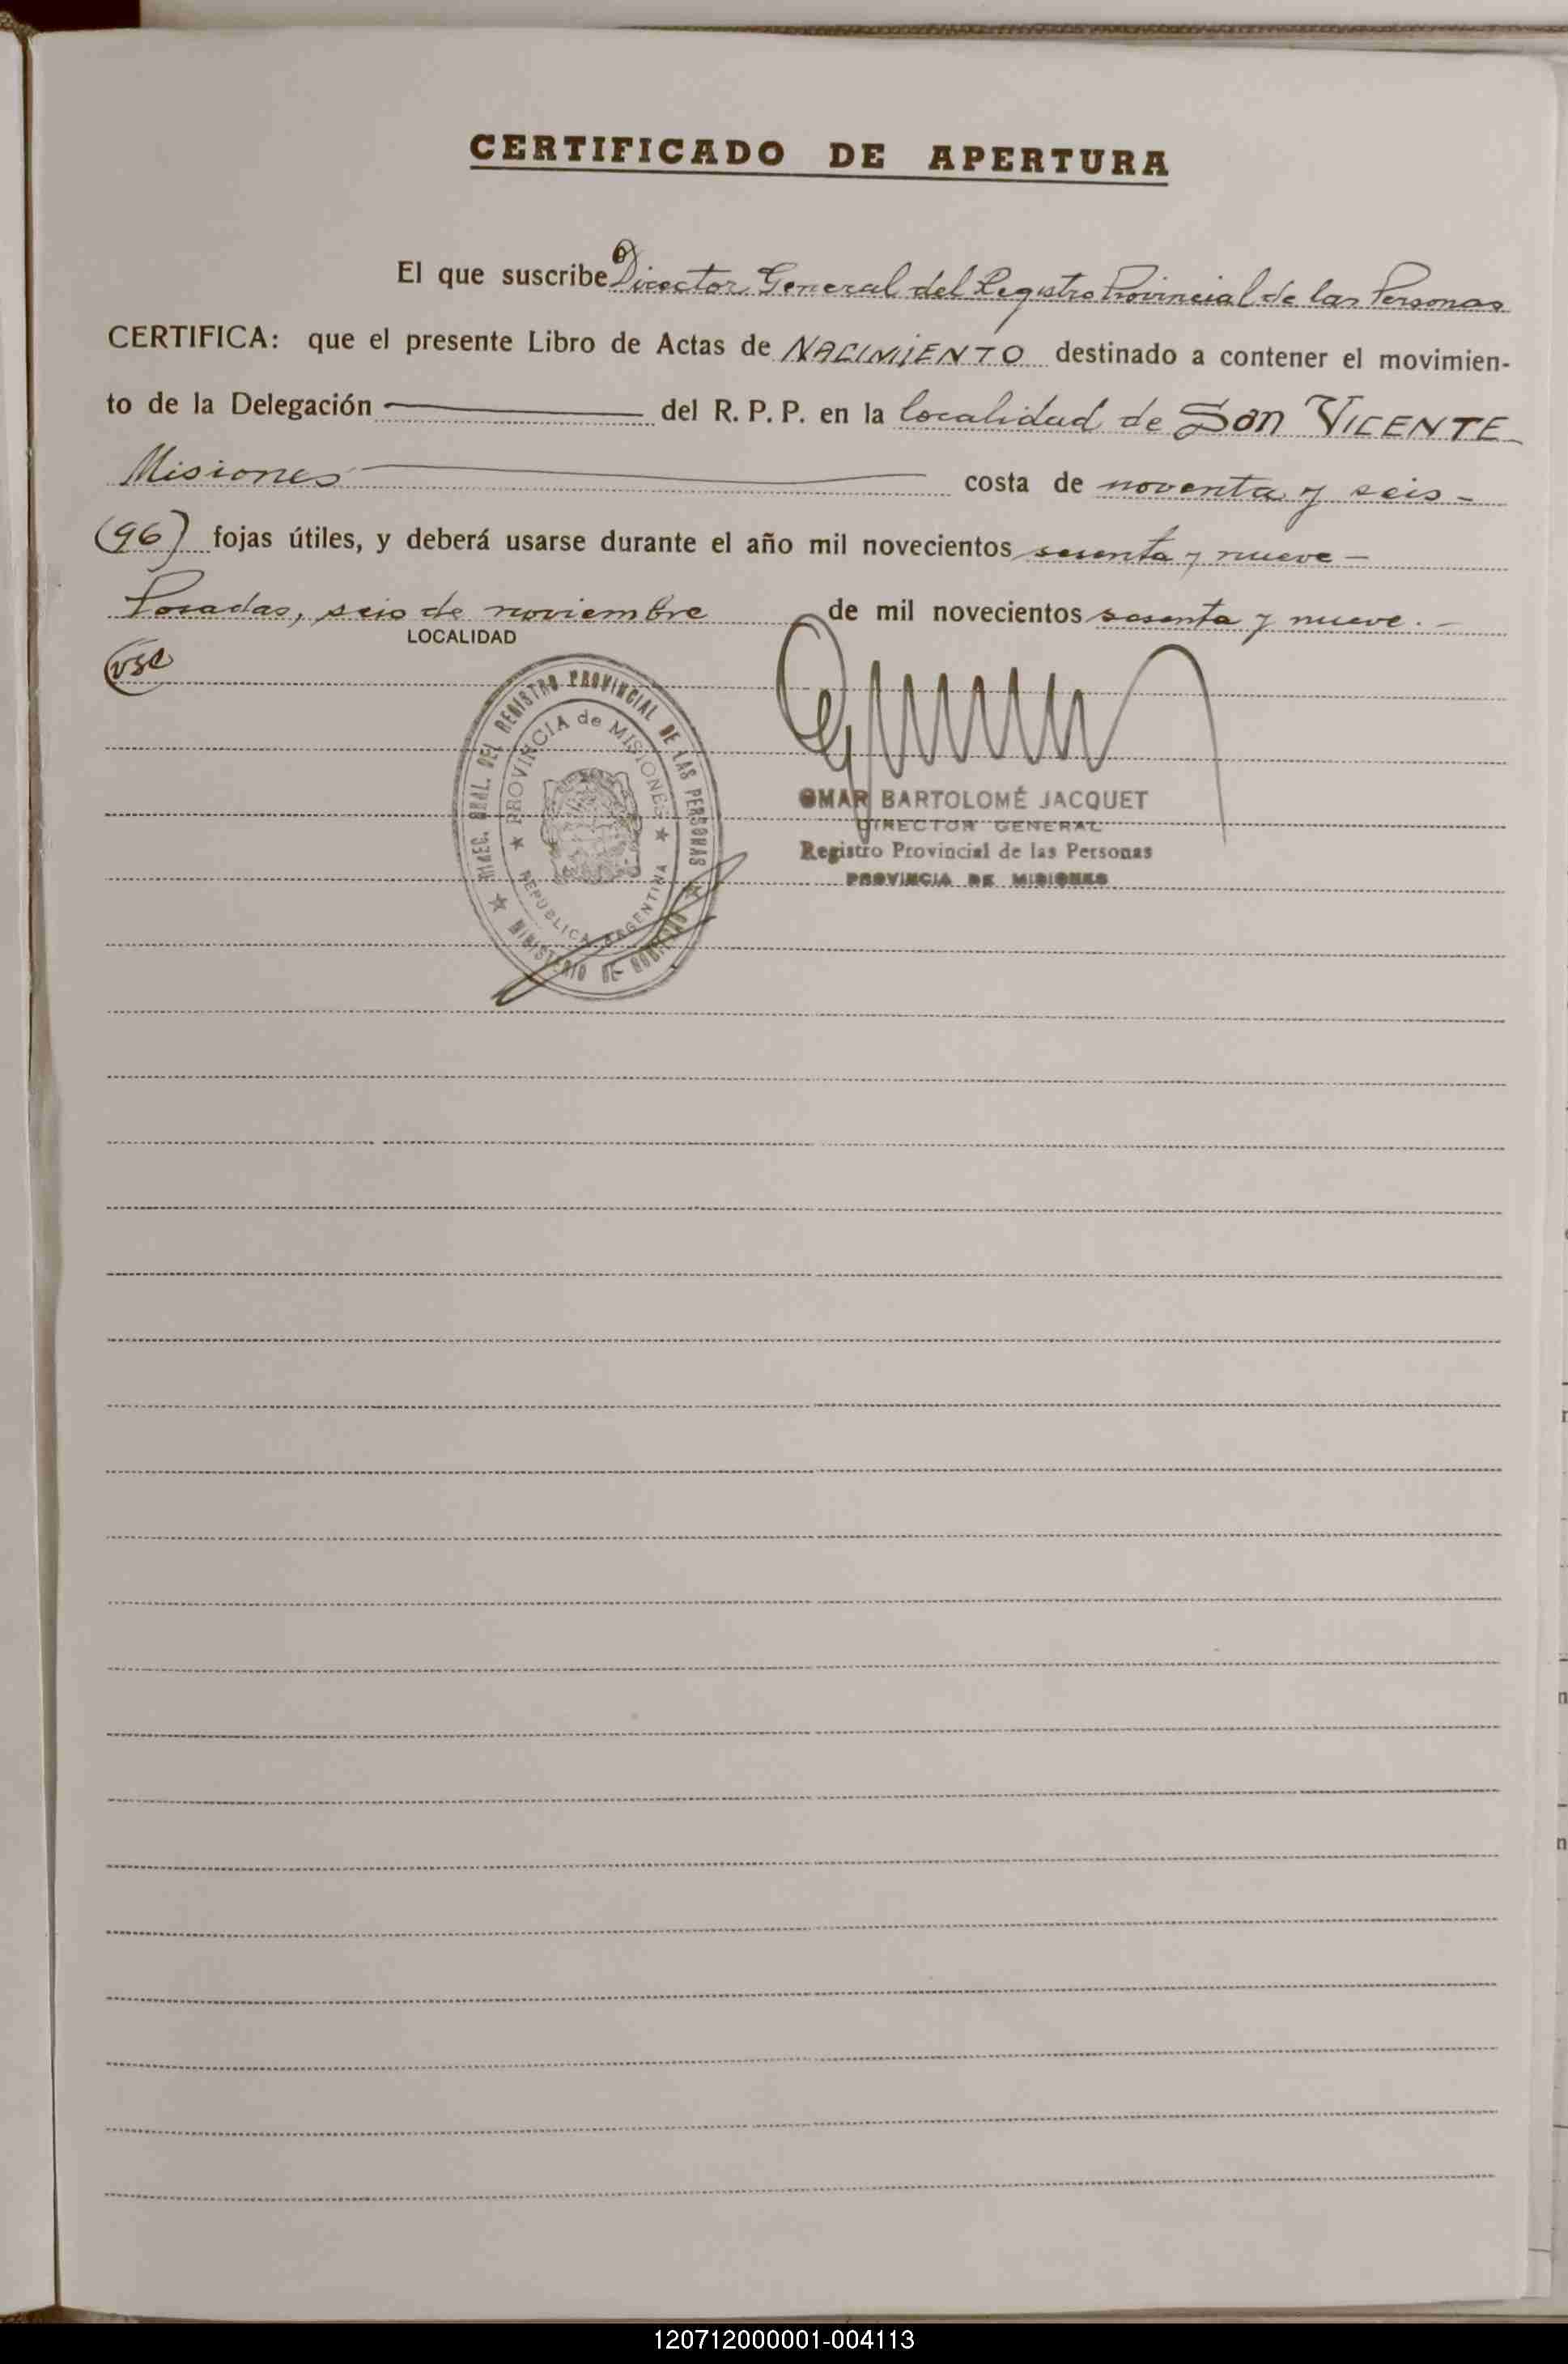 CERTIFICADO DE APERTURA
El que suscribe Director General del Registro Provincial de las Personas
CERTIFICA: que el presente Libro de Actas de NACIMIENTO destinado a contener el movimien-
to de la Delegación ——— del R. P. P. en la localidad de San VICENTE
Misiones ——— costa de noventa y seis -
(96) fojas útiles, y deberá usarse durante el año mil novecientos sesenta y nueve —
Posadas, seis de noviembre de mil novecientos sesenta y nueve. -
LOCALIDAD
DIREC. GRAL. DEL REGISTRO PROVINCIAL DE LAS PERSONAS
PROVINCIA de MISIONES
REPUBLICA ARGENTINA
MINISTERIO DE GOBIERNO
OMAR BARTOLOMÉ JACQUET
DIRECTOR GENERAL
Registro Provincial de las Personas
PROVINCIA DE MISIONES
120712000001-004113